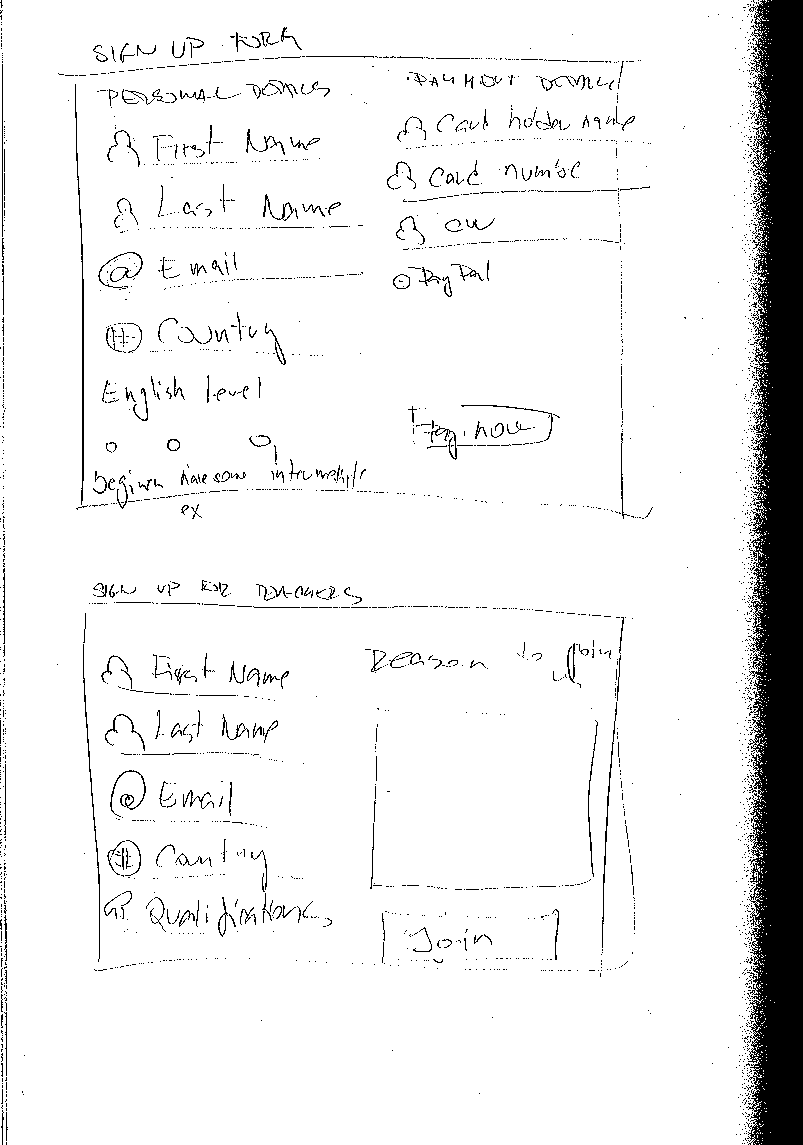 SIGN UP FORM
PERSONAL DETAILS
First Name
Last Name
@ Email
Country
English level
beginner have some intermediate
ex
PAYMENT DETAILS
Card holder name
Card number
CVV
PayPal
Pay now
SIGN UP FOR TEACHERS
First Name
Last Name
@ Email
Country
Qualifications
Reason to join
Join